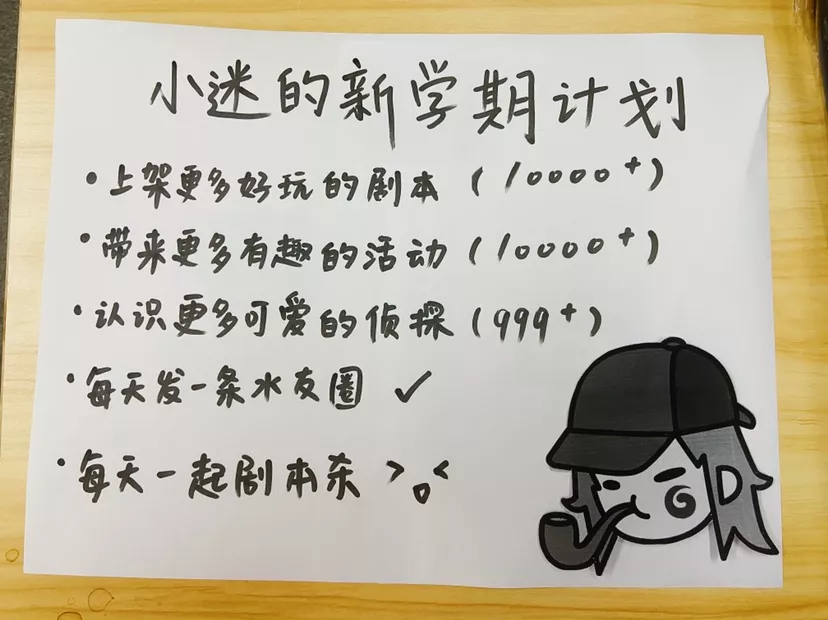 小迷的新学期计划
·上架更多好玩的剧本(10000+)
·带来更多有趣的活动(10000+)
·认识更多可爱的侦探(999+)
·每天发一条水友圈 ✓
·每天一起剧本东 >o<